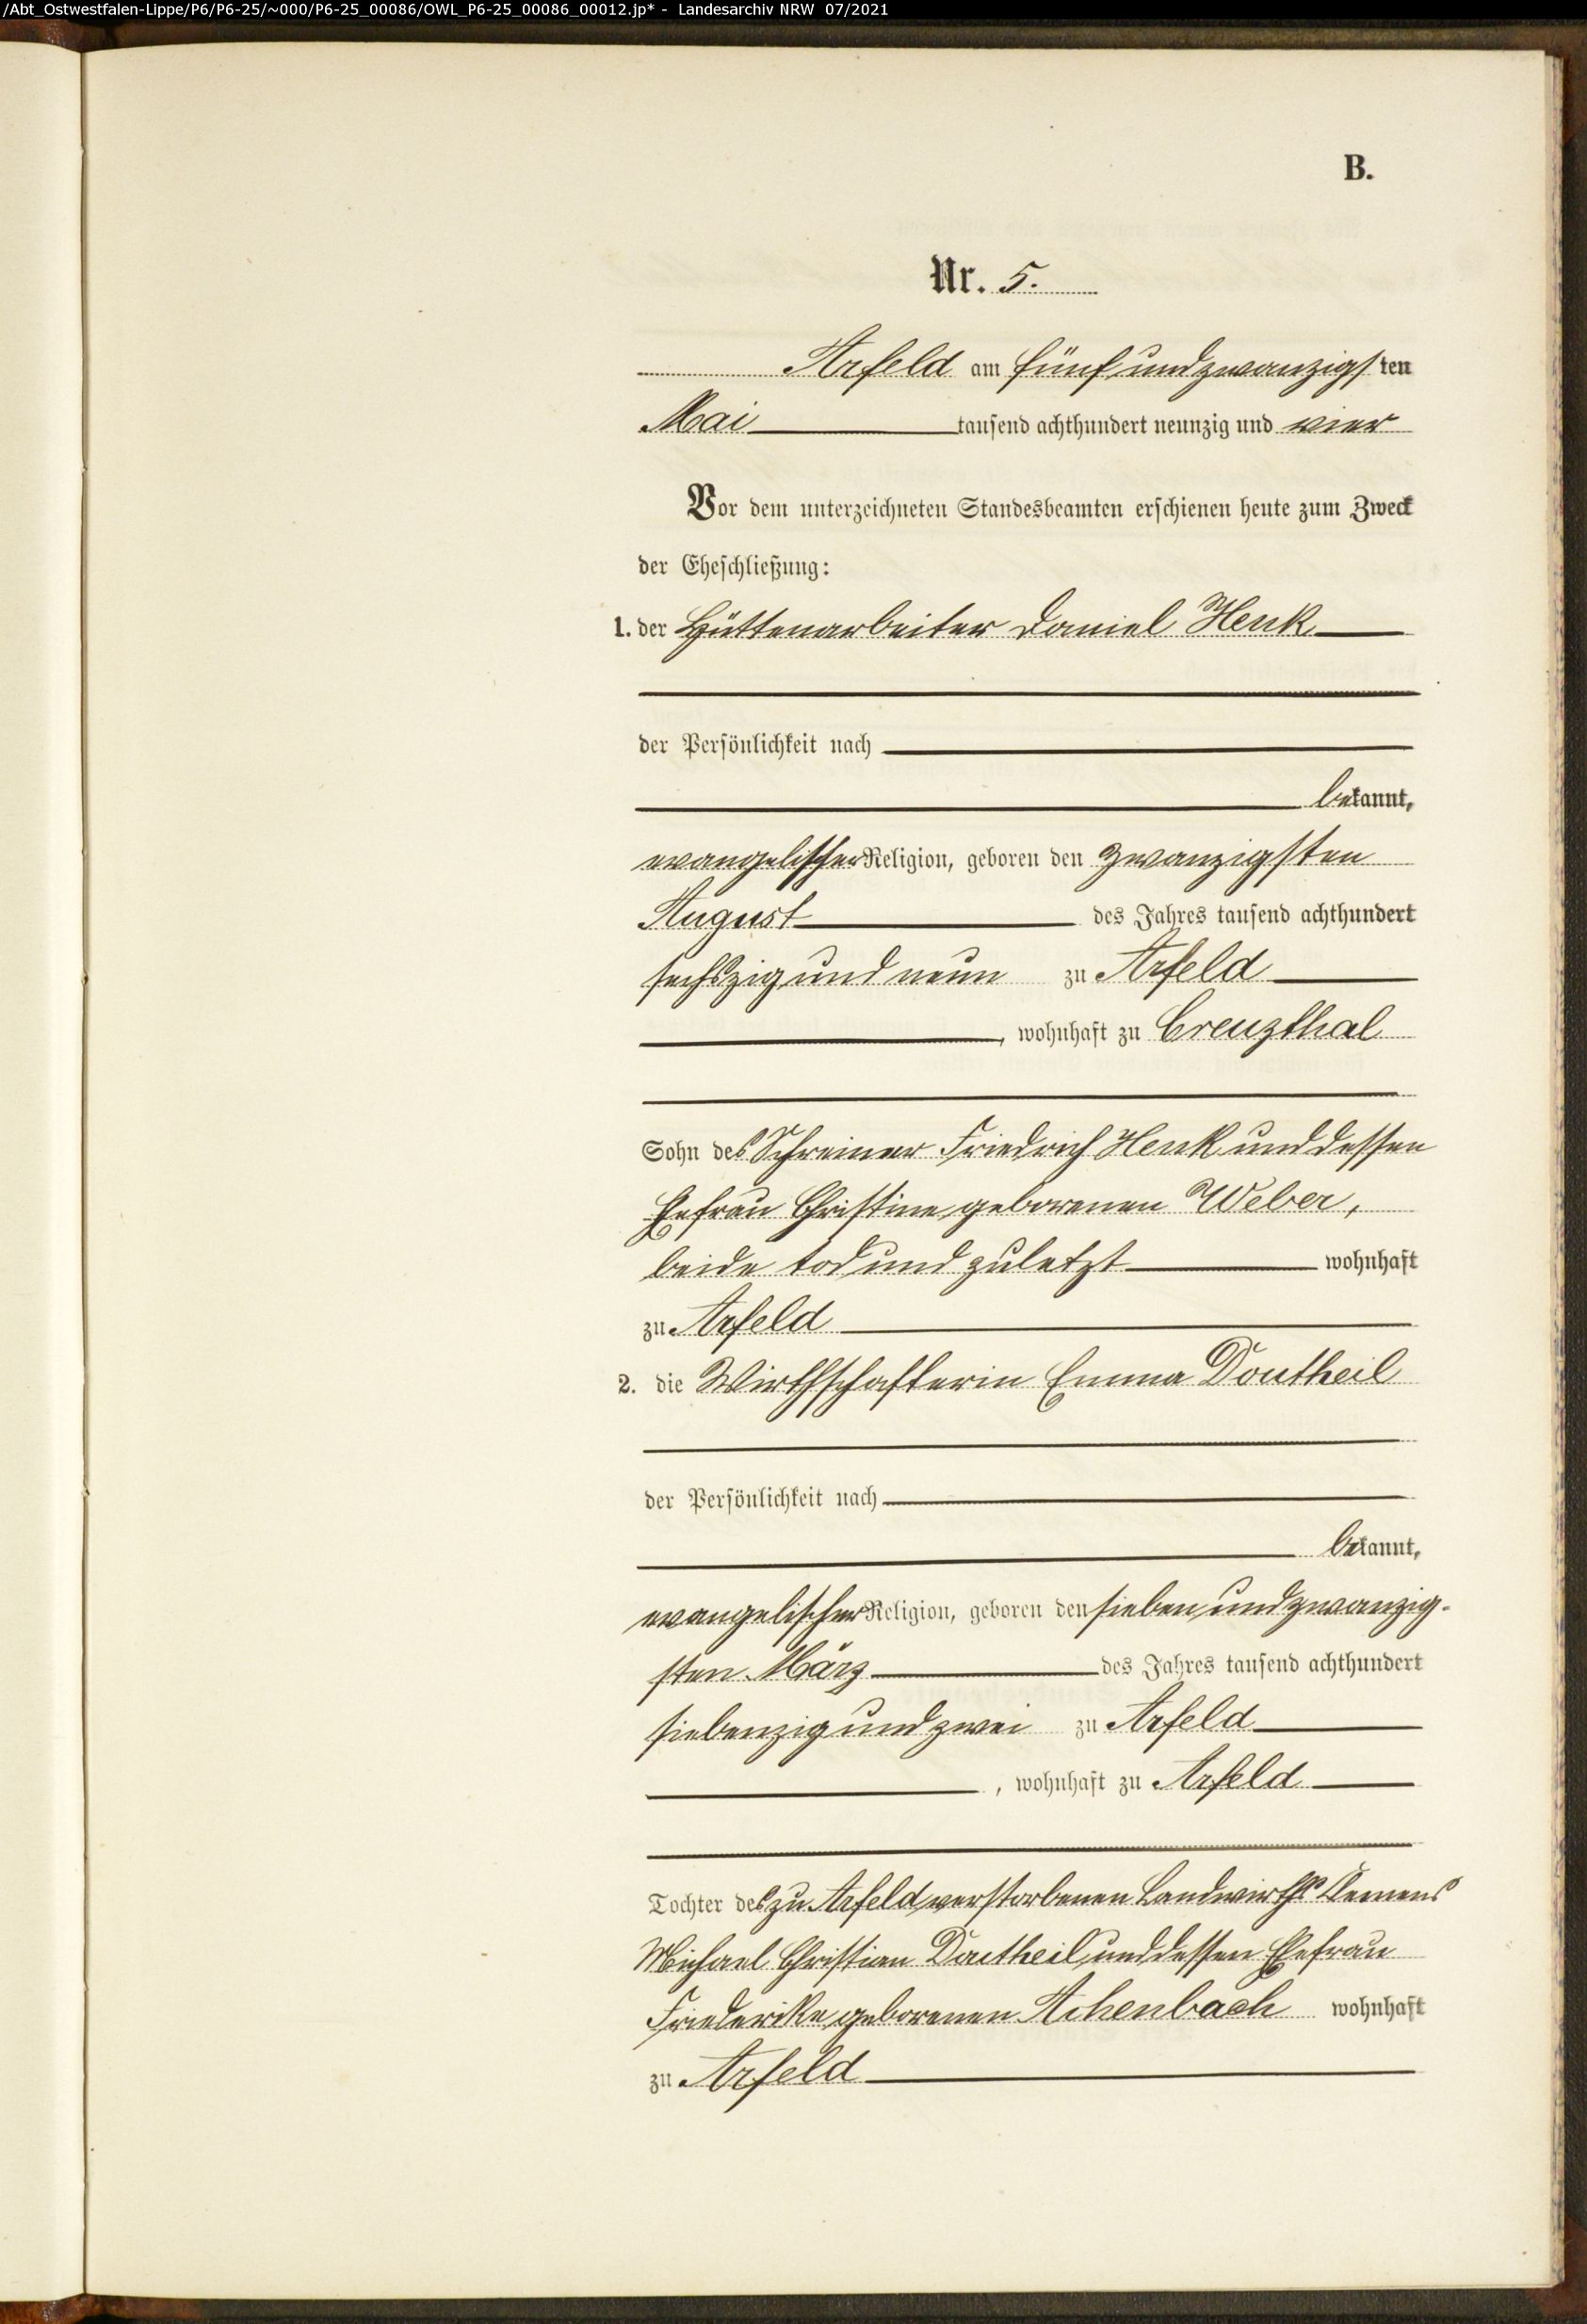 /Abt_Ostwestfalen-Lippe/P6/P6-25/~000/P6-25_00086/OWL_P6-25_00086_00012.jp* - Landesarchiv NRW 07/2021
B.
Nr. 5.
Arfeld am fünf und zwanzigsten
Mai tausend achthundert neunzig und vier
Vor dem unterzeichneten Standesbeamten erschienen heute zum Zweck
der Eheschließung:
1. der Hüttenarbeiter Daniel Henk
der Persönlichkeit nach
bekannt,
evangelischer Religion, geboren den zwanzigsten
August des Jahres tausend achthundert
sechszig und neun zu Arfeld
, wohnhaft zu Creuzthal
Sohn des Schreiner Friedrich Henk und dessen
Ehefrau Christine geborenen Weber,
beide tod und zuletzt wohnhaft
zu Arfeld
2. die Wirthschafterin Emma Dautheil
der Persönlichkeit nach
bekannt,
evangelischer Religion, geboren den sieben und zwanzig-
sten März des Jahres tausend achthundert
siebenzig und zwei zu Arfeld
, wohnhaft zu Arfeld
Tochter des zu Arfeld verstorbenen Landwirths Clemens
Michael Christian Dautheil und dessen Ehefrau
Friederike geborenen Achenbach wohnhaft
zu Arfeld